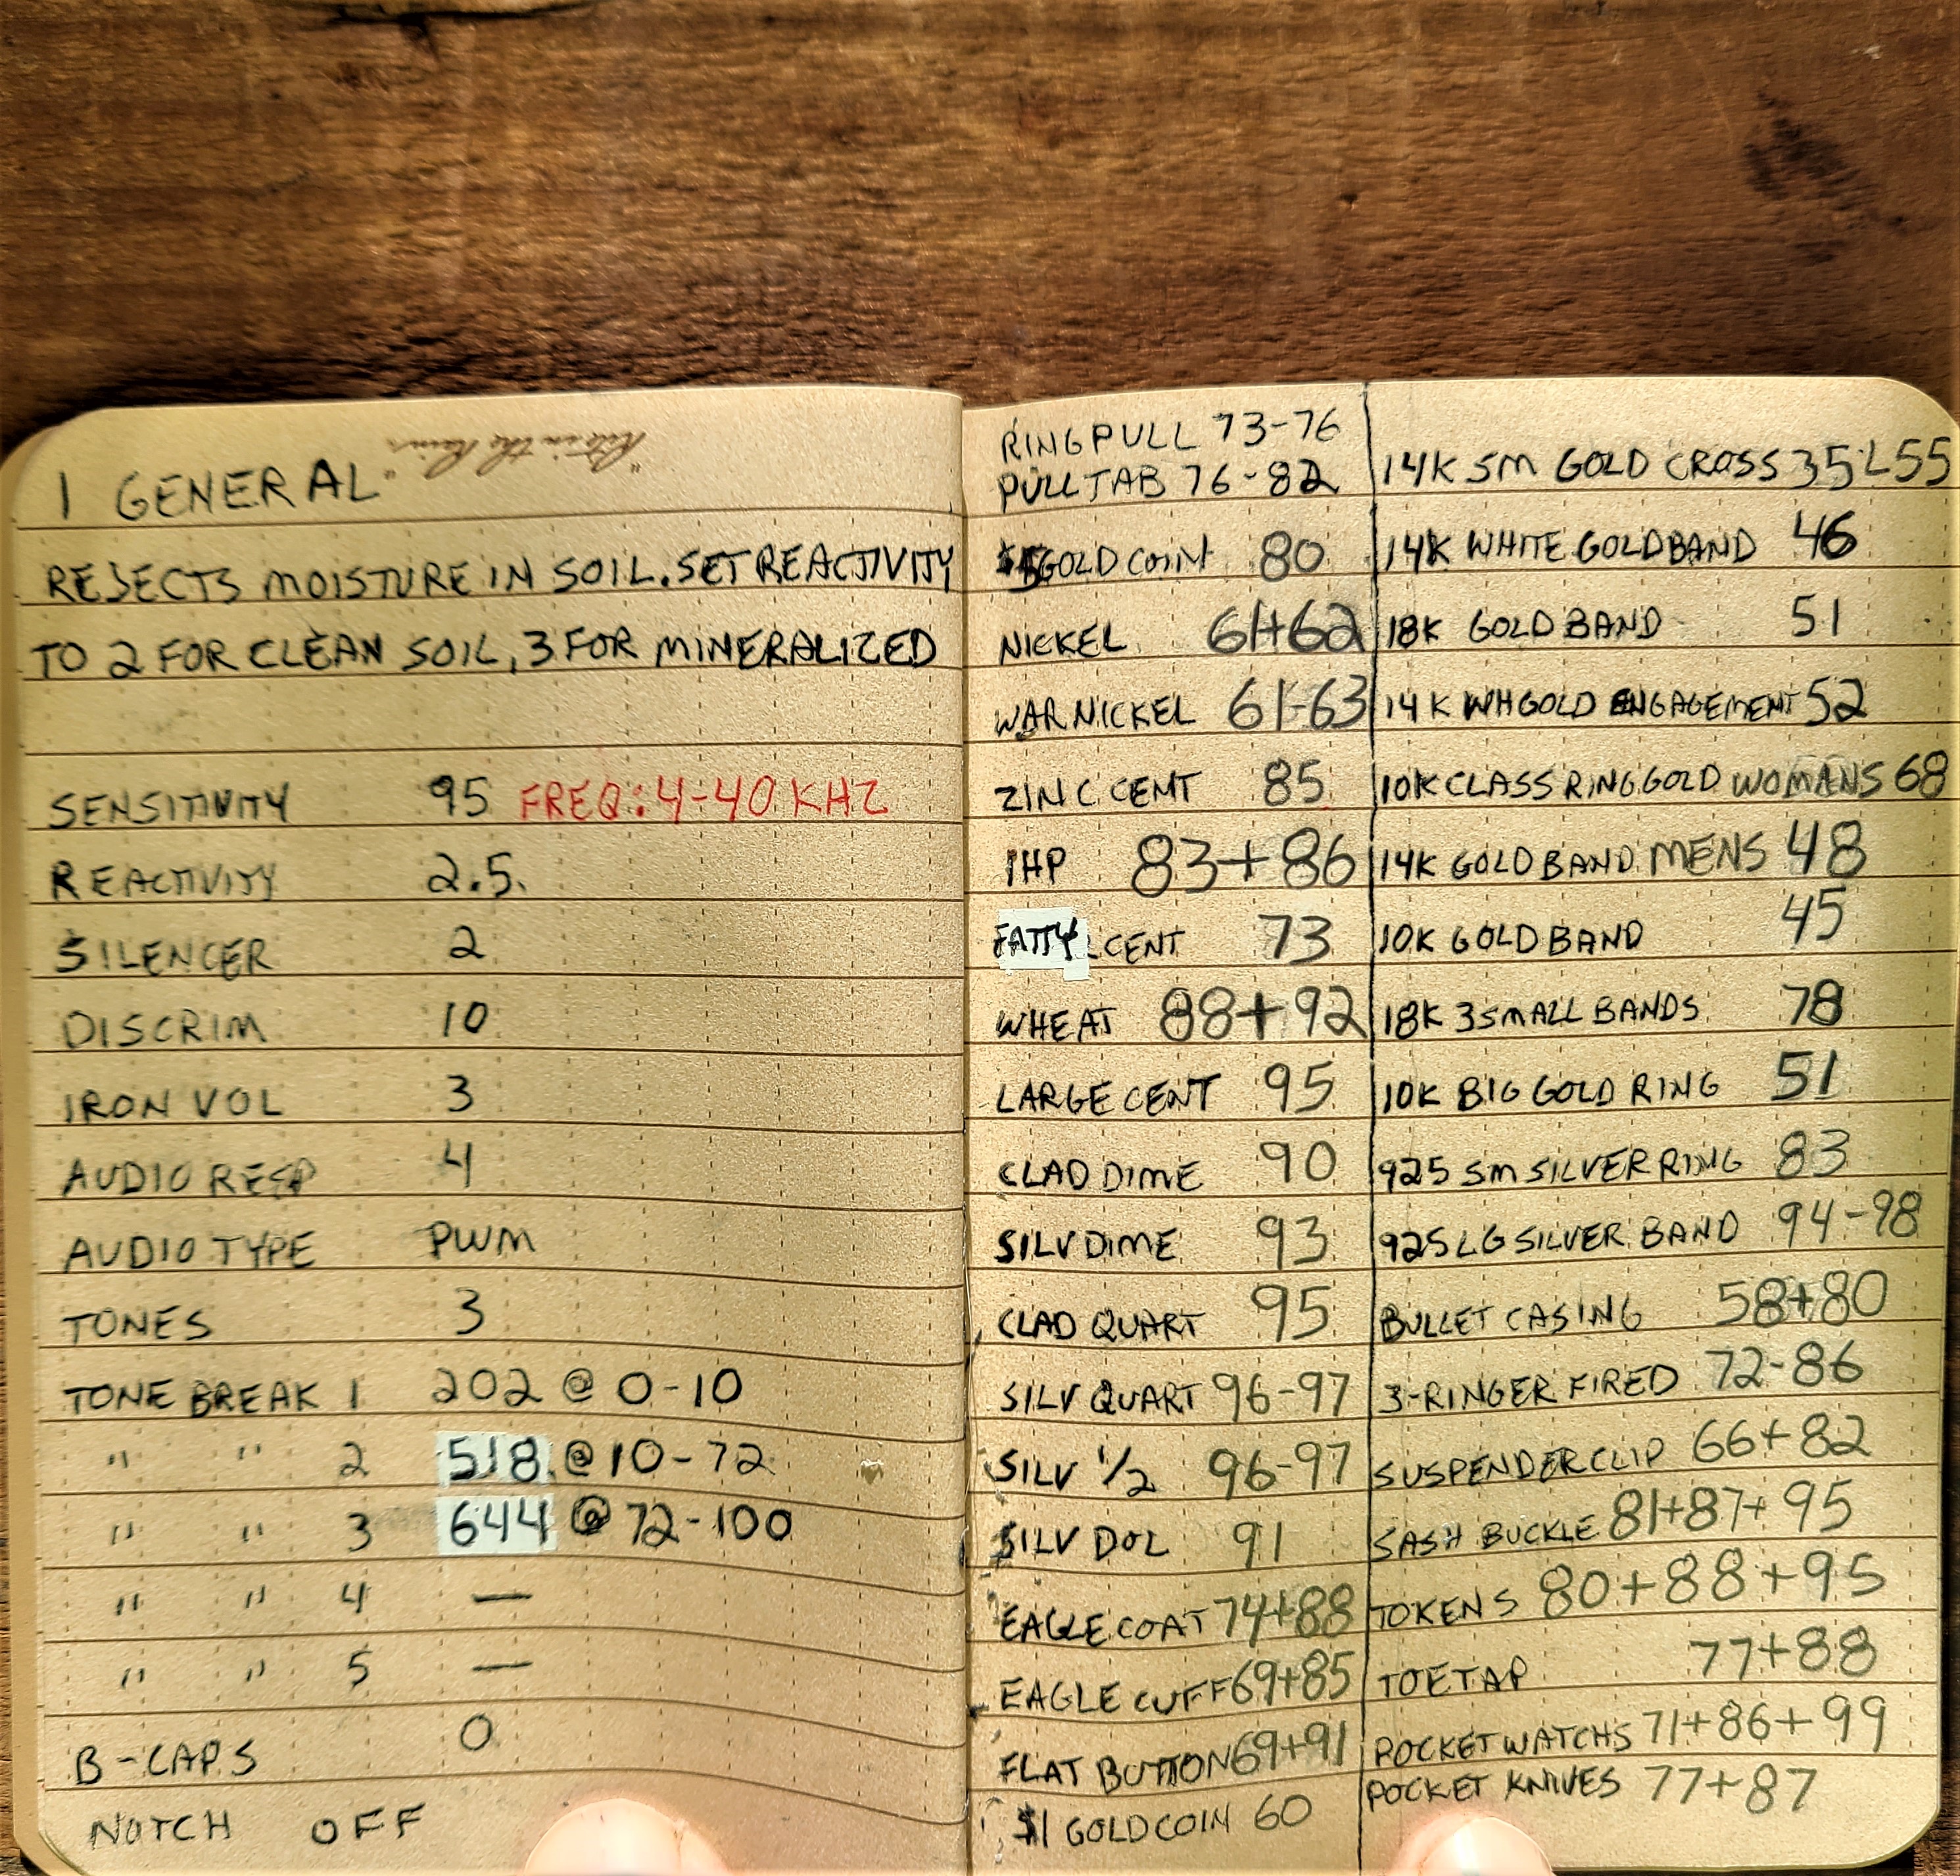 "Rite in the Rain"
1 GENERAL
REJECTS MOISTURE IN SOIL. SET REACTIVITY
TO 2 FOR CLEAN SOIL, 3 FOR MINERALIZED
SENSITIVITY 95 FREQ: 4-40 KHZ
REACTIVITY 2.5.
SILENCER 2
DISCRIM 10
IRON VOL 3
AUDIO RESP 4
AUDIO TYPE PWM
TONES 3
TONE BREAK 1 202 @ 0-10
" " 2 518 @ 10-72
" " 3 644 @ 72-100
" " 4 —
" " 5 —
B-CAPS 0
NOTCH OFF
RING PULL 73-76
PULL TAB 76-82
$5 GOLD COIN 80
NICKEL 61+62
WAR NICKEL 61-63
ZINC CENT 85
IHP 83+86
FATTY CENT 73
WHEAT 88+92
LARGE CENT 95
CLAD DIME 90
SILV DIME 93
CLAD QUART 95
SILV QUART 96-97
SILV 1/2 96-97
SILV DOL 91
EAGLE COAT 74+88
EAGLE CUFF 69+85
FLAT BUTTON 69+91
$1 GOLD COIN 60
14K SM GOLD CROSS 35 L55
14K WHITE GOLD BAND 46
18K GOLD BAND 51
14K WH GOLD ENGAGEMENT 52
10K CLASS RING GOLD WOMANS 68
14K GOLD BAND MENS 48
10K GOLD BAND 45
18K 3 SMALL BANDS 78
10K BIG GOLD RING 51
925 SM SILVER RING 83
925 LG SILVER BAND 94-98
BULLET CASING 58+80
3-RINGER FIRED 72-86
SUSPENDER CLIP 66+82
SASH BUCKLE 81+87+95
TOKENS 80+88+95
TOE TAP 77+88
POCKET WATCHS 71+86+99
POCKET KNIVES 77+87